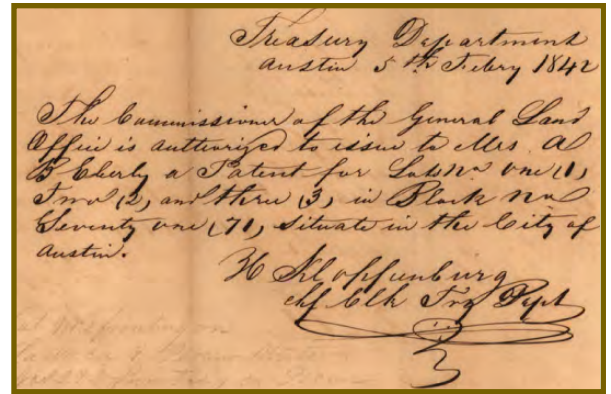 Treasury Department
Austin 5th Febry 1842
The Commissioner of the General Land
Office is authorized to issue to Mrs. A
B Eberly a Patent for Lots No one (1,
Two (2, and three (3, in Block No
Seventy one (71, situate in the City of
Austin.
H Kloppenburg
Chf Clk Try Dept